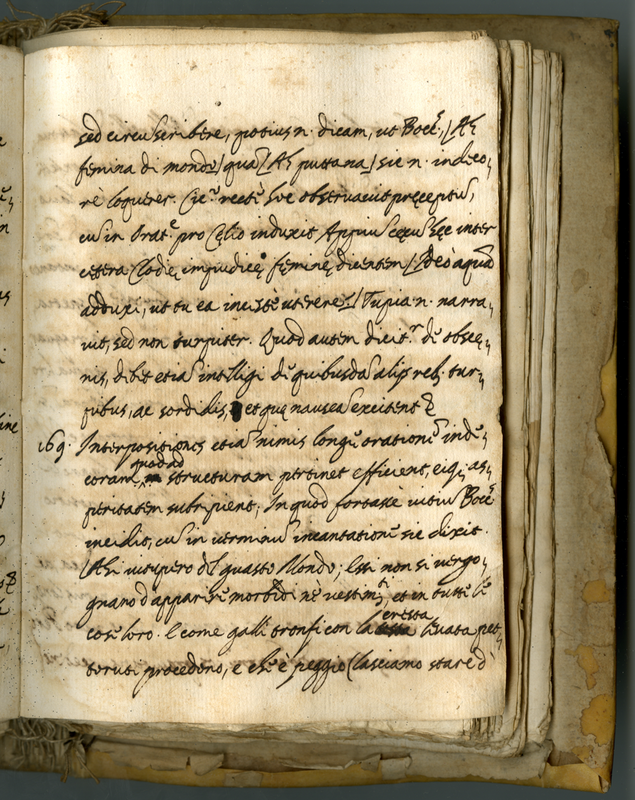 sed circuscribere, potius n. dicam, ut Bocc., (Ah
femina di mondo) qua (Ah puttana) sic n. indeco-
rè loquerer. Cic. rectè hoc observavit pręceptū,
cū in Orat.e pro Cęlio induxit Appiū cęcū hęc inter
cetera Clodię impudicę feminę dicentem / Ideò aquā
adduxi, ut tu ea incestè uterere / Turpia n. narra-
vit, sed non turpiter. Quod autem dicit.r de obscę-
nis, debet etiā intelligi de quibusdā alijs reb. tur-
pibus, ac sordidis, et quę nauseā excitent
169. Interpositiones etiā nimis longę orationē inde-
coram, quoad structuram pertinet efficient, eiq; as-
peritatem subripient; In quod fortassè vitiū Bocc.
incidit, cū in verminū incantationē sic dixit.
(Ahi vitupero del guasto Mondo; Essi non si vergo-
gnano d'apparire morbidi nè vestimti, et in tutte le
cose loro. E come galli tronfi con la cresta levata pet-
toruti procedono, e che è peggio (lasciamo stare d